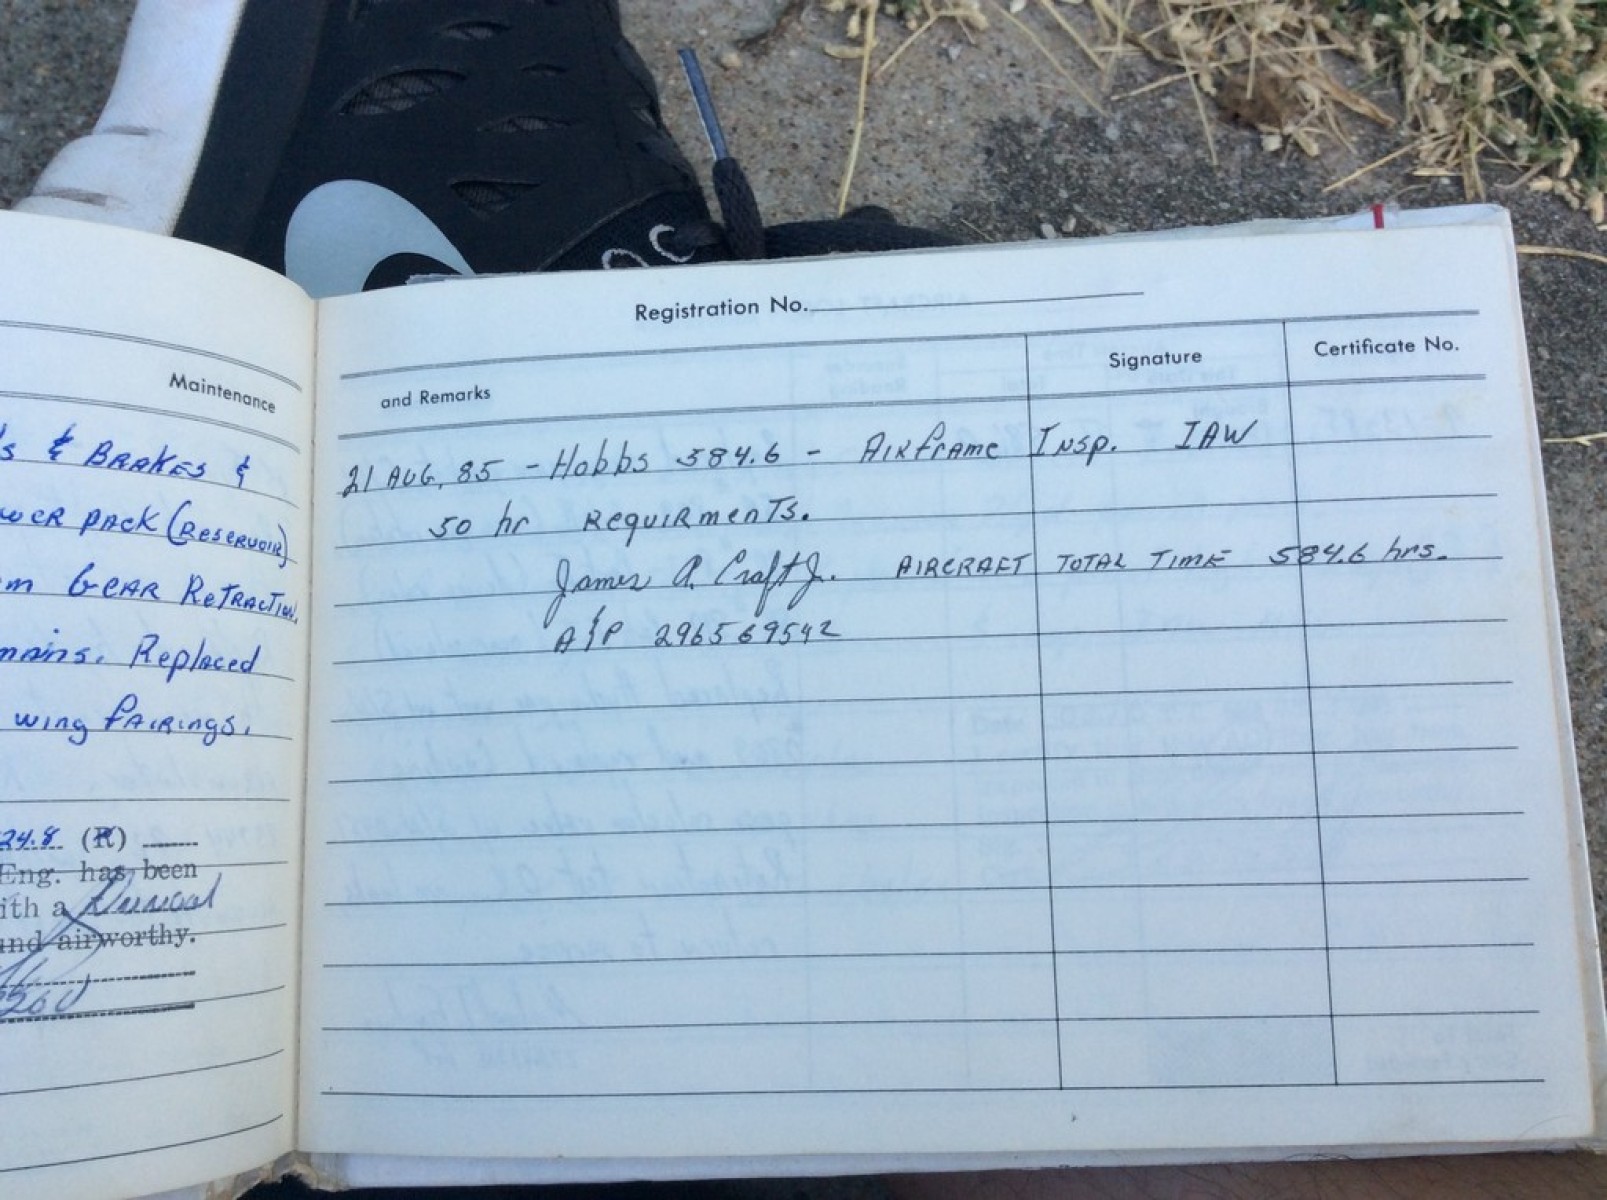 Maintenance
& BRAKES &
PACK (RESERVOIR)
GEAR RETRACTION.
Replaced
wing fairings.
24.8 (R)
Eng. has been
ith a Annual
und airworthy.
Registration No.
and Remarks Signature Certificate No.
21 AUG, 85 - Hobbs 584.6 - AIRframe Insp. IAW
50 hr REquIRmenTs.
James A. Craft Jr. AIRCRAFT TOTAL TIME 584.6 hrs.
A&P 296569542